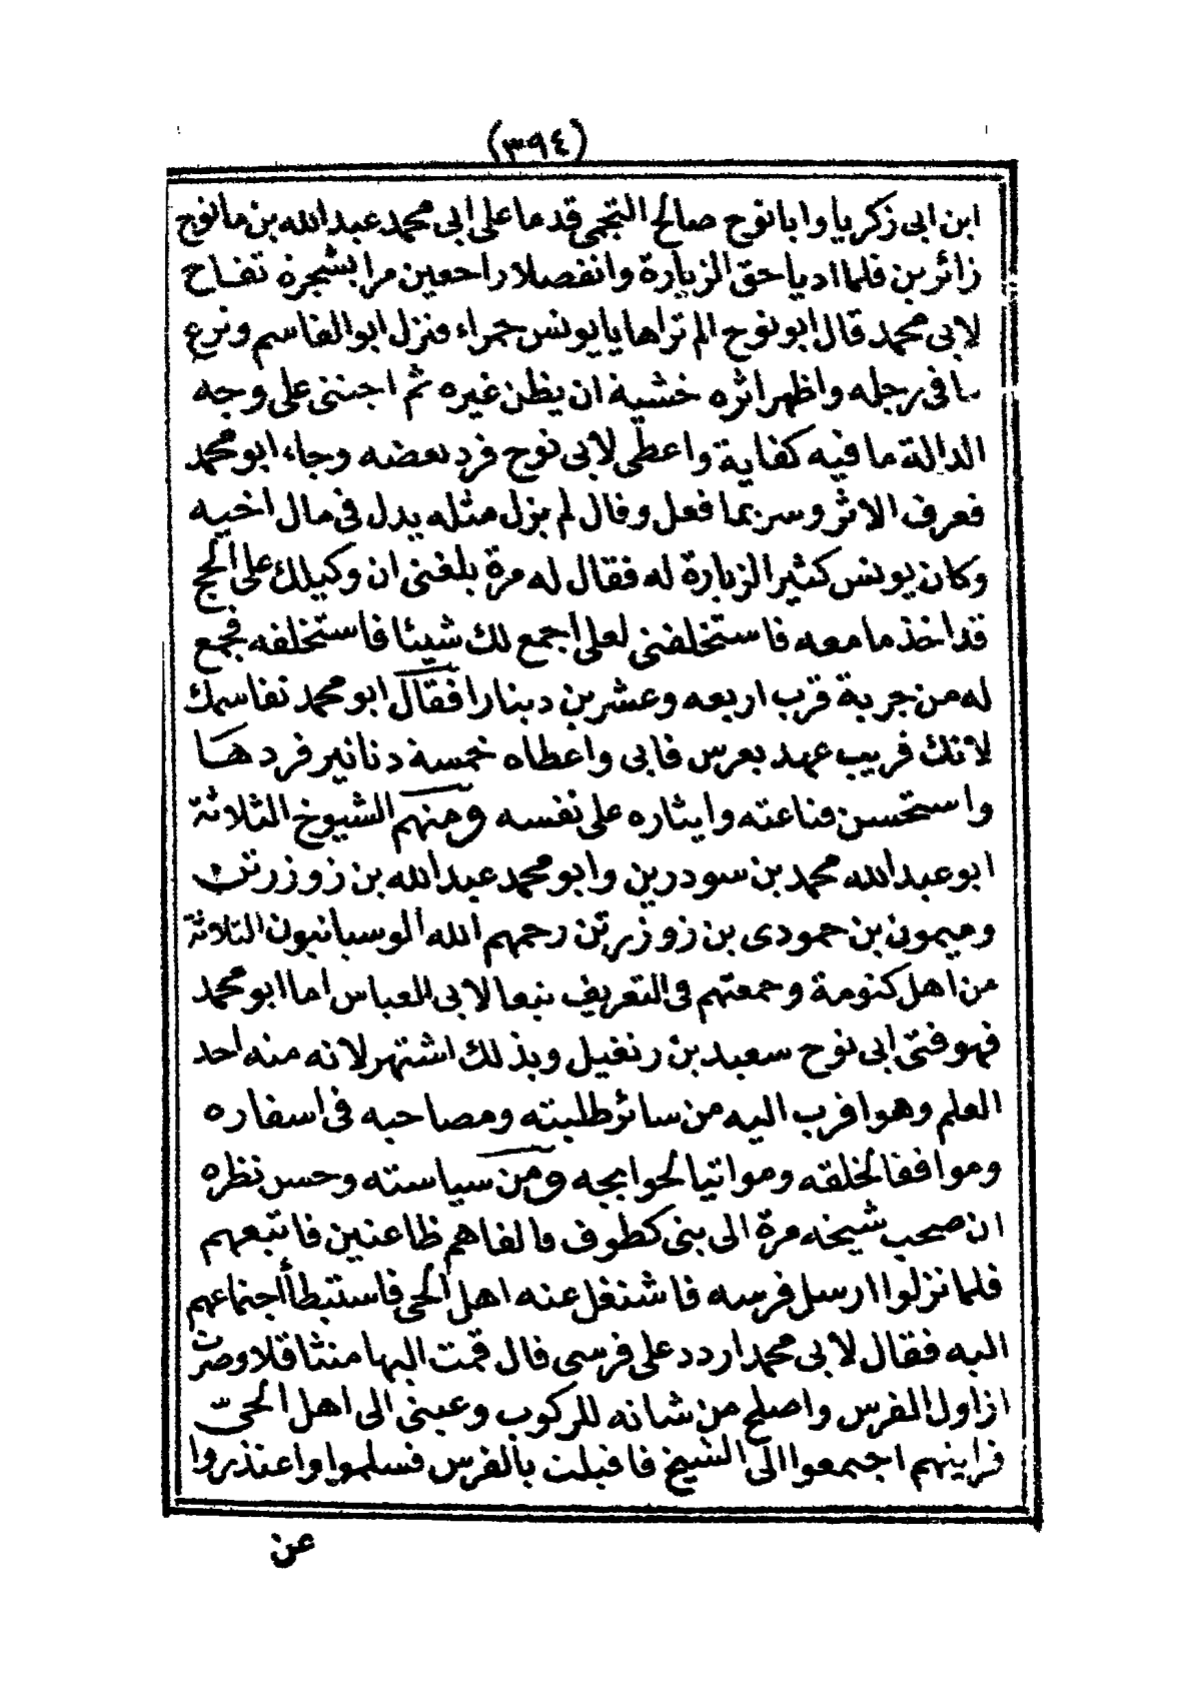 (٣٩٤)
ابن ابى زكريا وابا نوح صالح النجمى قدما على ابى محمد عبد الله بن مانوج
زائرين فلما اديا حق الزيارة وانفصلا راجعين مرا بشجرة تفاح
لابى محمد قال ابو نوح الم تراها يا يونس حمراء فنزل ابو القاسم ونزع
ما فى رجله واظهر اثره خشية ان يظن غيره ثم اجتنى على وجه
الدالة ما فيه كفاية واعطى لابى نوح فرد بعضه وجاء ابو محمد
فعرف الاثر وسر بما فعل وقال لم يزل مثله يدل فى مال اخيه
وكان يونس كثير الزيارة له فقال له مرة بلغنى ان وكيلك على الحج
قد اخذ ما معه فاستخلفنى لعلى اجمع لك شيئا فاستخلفه فجمع
له من جربة قرب اربعه وعشرين دينارا فقال ابو محمد نقاسمك
لانك قريب عهد بعرس فابى واعطاه خمسة دنانير فردها
واستحسن قناعته وايثاره على نفسه ومنهم الشيوخ الثلاثة
ابو عبد الله محمد بن سودرين وابو محمد عبد الله بن زوزرتن
وميمون بن حمودى بن زوزرتن رحمهم الله الوسيانيون الثلاثة
من اهل كنومة وجمعتهم فى التعريف تبعا لابى العباس اما ابو محمد
فهو فتى ابى نوح سعيد بن زنغيل وبذلك اشتهر لانه منه اخذ
العلم وهو اقرب اليه من سائر طلبته ومصاحبه فى اسفاره
وموافقا لخلقه ومواتيا لحوايجه ومن سياسته وحسن نظره
ان صحب شيخه مرة الى بنى كطوف فالفاهم ظاعنين فاتبعهم
فلما نزلوا ارسل فرسه فاشتغل عنه اهل الحى فاستبطأ اجتماعهم
اليه فقال لابى محمد اردد على فرسى قال قمت اليها متثاقلا وصرت
ازاول الفرس واصلح من شانه للركوب وعينى الى اهل الحىّ
فرايتهم اجتمعوا الى الشيخ فاقبلت بالفرس فسلموا واعتذروا
عن